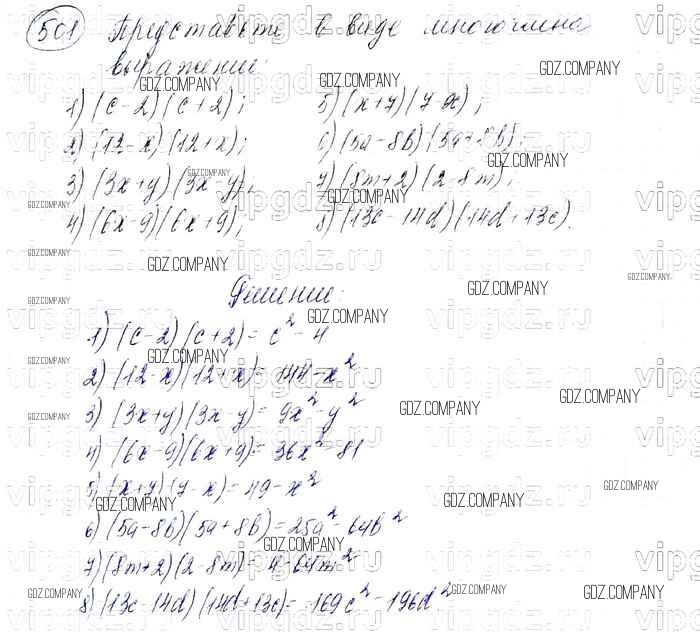 501 Представьте в виде многочлена
выражение:
1) (c-2)(c+2); 5) (x+7)(7-x);
2) (12-x)(12+x); 6) (5a-8b)(5a+8b);
3) (3x+y)(3x-y); 7) (8m+2)(2-8m);
4) (6x-9)(6x+9); 8) (13c-14d)(14d+13c).
Решение:
1) (c-2)(c+2)= c²-4
2) (12-x)(12+x)= 144-x²
3) (3x+y)(3x-y)= 9x²-y²
4) (6x-9)(6x+9)= 36x²-81
5) (x+7)(7-x)= 49-x²
6) (5a-8b)(5a+8b)=25a²-64b²
7) (8m+2)(2-8m)= 4-64m²
8) (13c-14d)(14d+13c)= 169c²-196d²
GDZ.COMPANY
vipgdz.ru